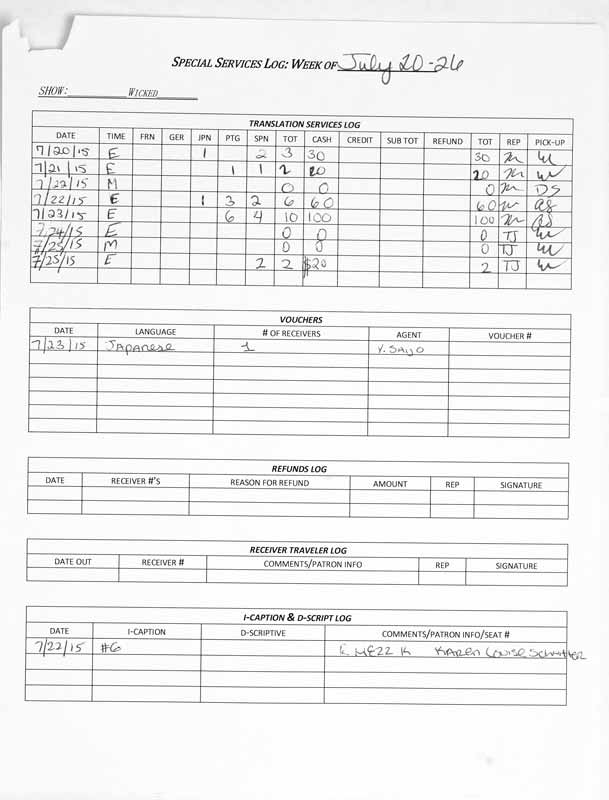 SPECIAL SERVICES LOG: WEEK OF July 20-26
SHOW: WICKED
TRANSLATION SERVICES LOG
DATE TIME FRN GER JPN PTG SPN TOT CASH CREDIT SUB TOT REFUND TOT REP PICK-UP
7/20/15 E 1 2 3 30 30
7/21/15 E 1 1 2 20 20
7/22/15 M 0 0 0 DS
7/22/15 E 1 3 2 6 60 60
7/23/15 E 6 4 10 100 100
7/24/15 E 0 0 0 TJ
7/25/15 M 0 0 0 TJ
7/25/15 E 2 2 $20 2 TJ
VOUCHERS
DATE LANGUAGE # OF RECEIVERS AGENT VOUCHER #
7/23/15 Japanese 1 Y. Saijo
REFUNDS LOG
DATE RECEIVER #'S REASON FOR REFUND AMOUNT REP SIGNATURE
RECEIVER TRAVELER LOG
DATE OUT RECEIVER # COMMENTS/PATRON INFO REP SIGNATURE
I-CAPTION & D-SCRIPT LOG
DATE I-CAPTION D-SCRIPTIVE COMMENTS/PATRON INFO/SEAT #
7/22/15 #6 R MEZZ K KAREN LOUISE